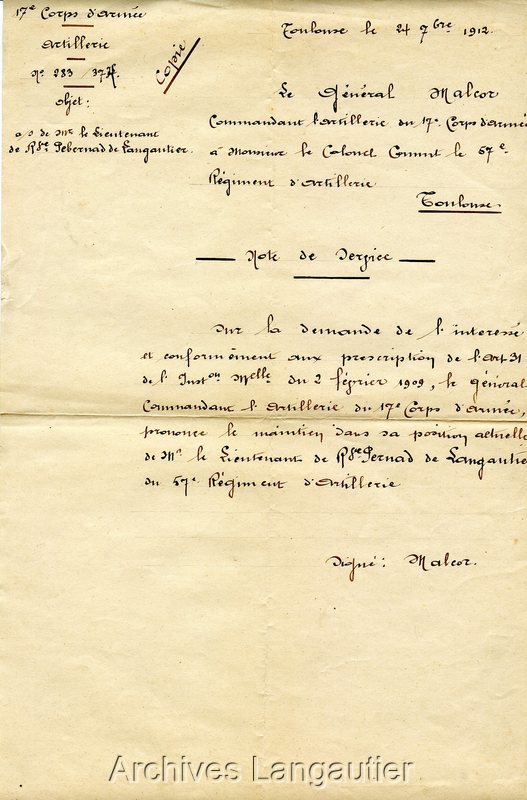 17e Corps d'Armée
Artillerie
No 283
Objet:
a/s de Mr le Lieutenant
de Rve Pebernad de Langautier.
Copie
Toulouse le 24 7bre 1912.
Le Général Malcor
Commandant l'Artillerie du 17e Corps d'Armée
à Monsieur le Colonel Commt le 57e
Régiment d'Artillerie
Toulouse.
Note de Service
Sur la demande de l'interessé
et conformément aux prescription de l'Art 31
de l'Inston Mlle du 2 février 1909, le général
Commandant l'Artillerie du 17e Corps d'Armée,
prononce le maintien dans sa position actuelle
de Mr le Lieutenant de Rve Pernad de Langautie
du 57e Régiment d'Artillerie
Signé: Malcor.
Archives Langautier